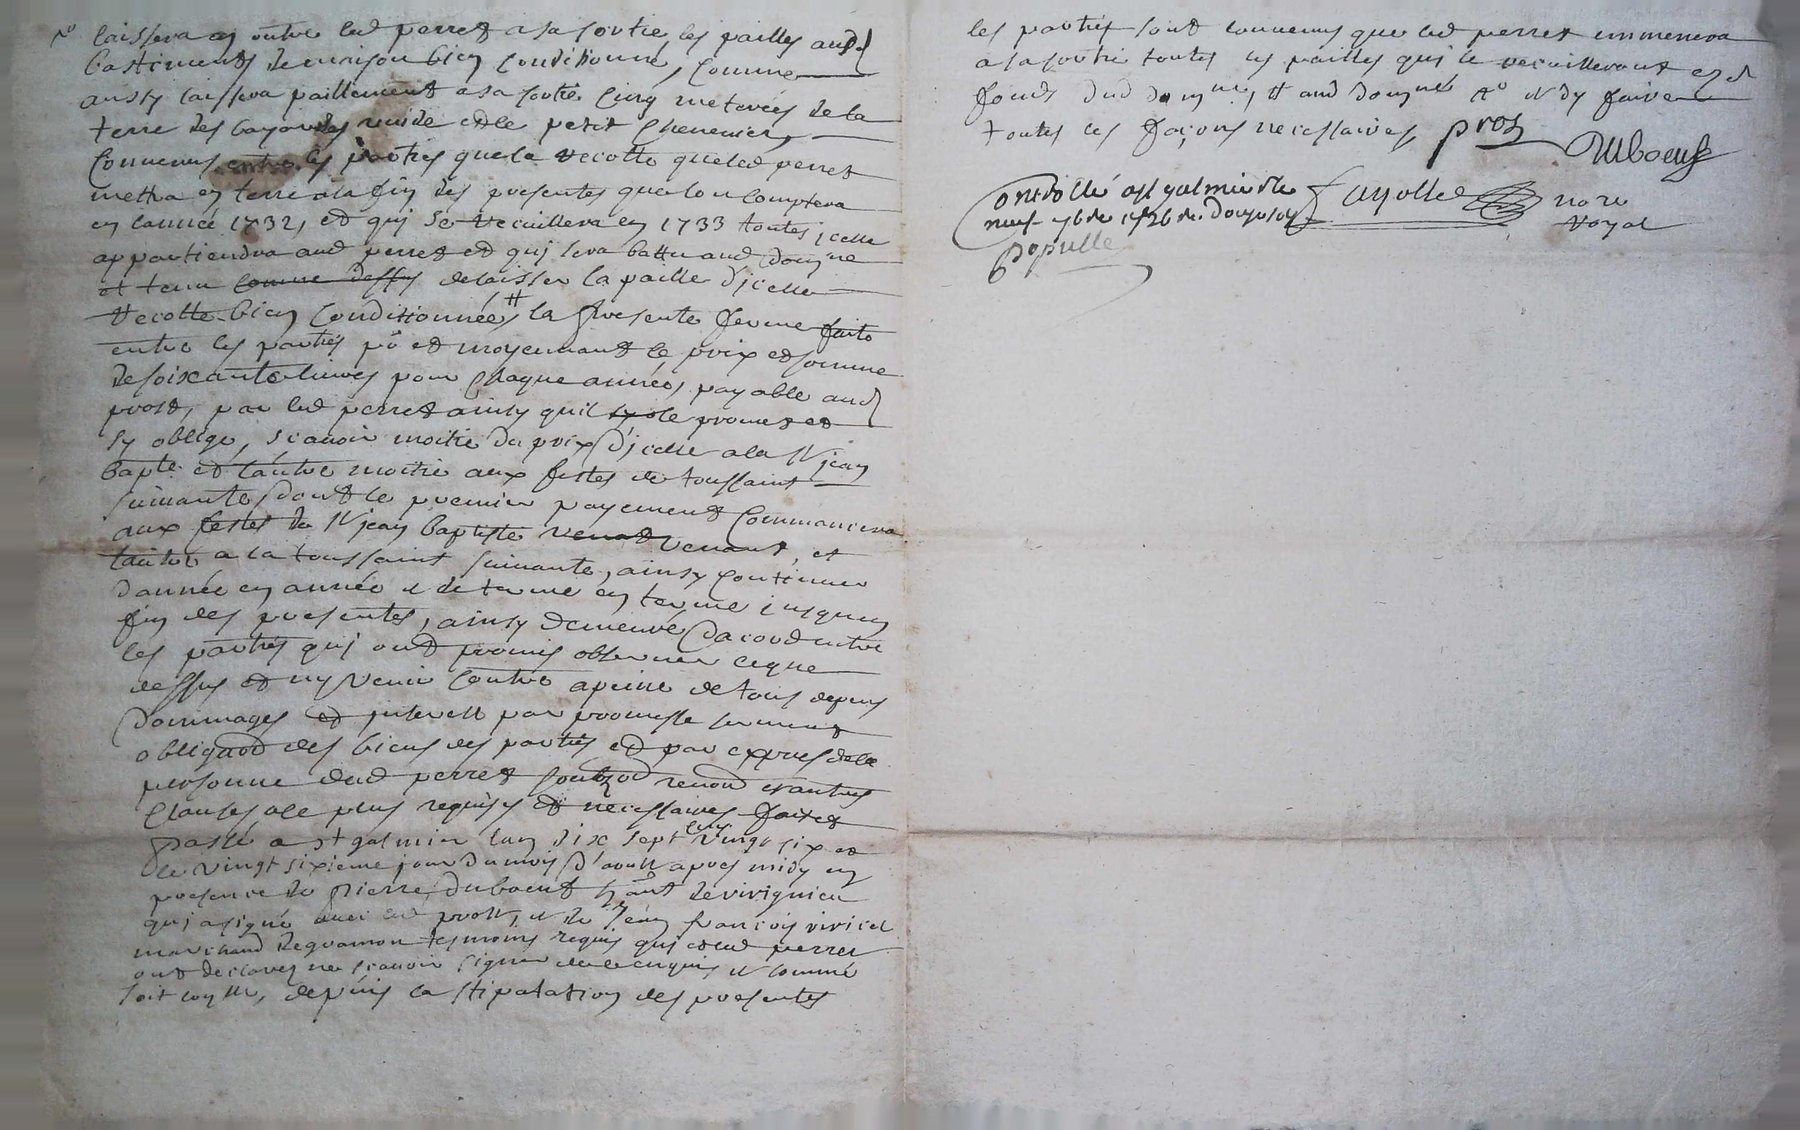 laissera en outre led perret a sa sortie les pailles aud
bastiments de maison bien conditionné, comme
aussy laissera paillement a sa sortie cinq meterées de la
terre des et le petit chenevier,
Convenus entre les parties que la recolte que led perret
mettra en terre a la fin des presentes que lon comptera
en lannée 1732, et qui se recuillera en 1733 toutes icelle
appartiendra aud perret et qui sera battu aud domne
et tenu comme dessus de laisser la paille d'icelle
Recolte bien conditionnée, la presente ferme faite
entre les parties po et moyennant le prix et somme
de soixante livres pour chaque année, payable aud
prost, par led perret ainsy quil promet et
sy oblige, scavoir moitié du prix d'icelle a la St jean
bapte et lautre moitié aux festes de toussaint
suivante, dont le premier payement commancera
aux festes de St jean baptiste venant, et
lautre a la toussaint suivante, ainsy continuer
d'année en année et de terme en terme jusques
fin des presentes, ainsy demeuré d'acord entre
les parties qui ont promis observer ce que
dessus et ny venir contre a peine de tous depens
dommages et interest par promesse serment
obligaod des biens des parties et par expres de la
personne dud perret renod et autres
clauses ale plus requises et necessaires fait et
passé a st galmier lan mil sept cent vingt six et
le vingt sixieme jour du mois d'aoust apres midy en
presence de pierre duboeuf hant de virignieu
qui a signé avec led prost, et de jean francois
marchand de tesmoins requis qui et led perret
ont declarez ne scavoir signer de ce enquis et sommé
soit depuis la stipulation des presentes
les parties sont convenus que led perret emmenera
a sa sortie toutes les pailles qui se recuilleront
fonds dud domne, et aud domgne et dy faire
toutes les façons necessaires prost
Duboeuf
Controllé a St galmier le
neuf 7bre 1726
Fayolle
nore
royal
populle